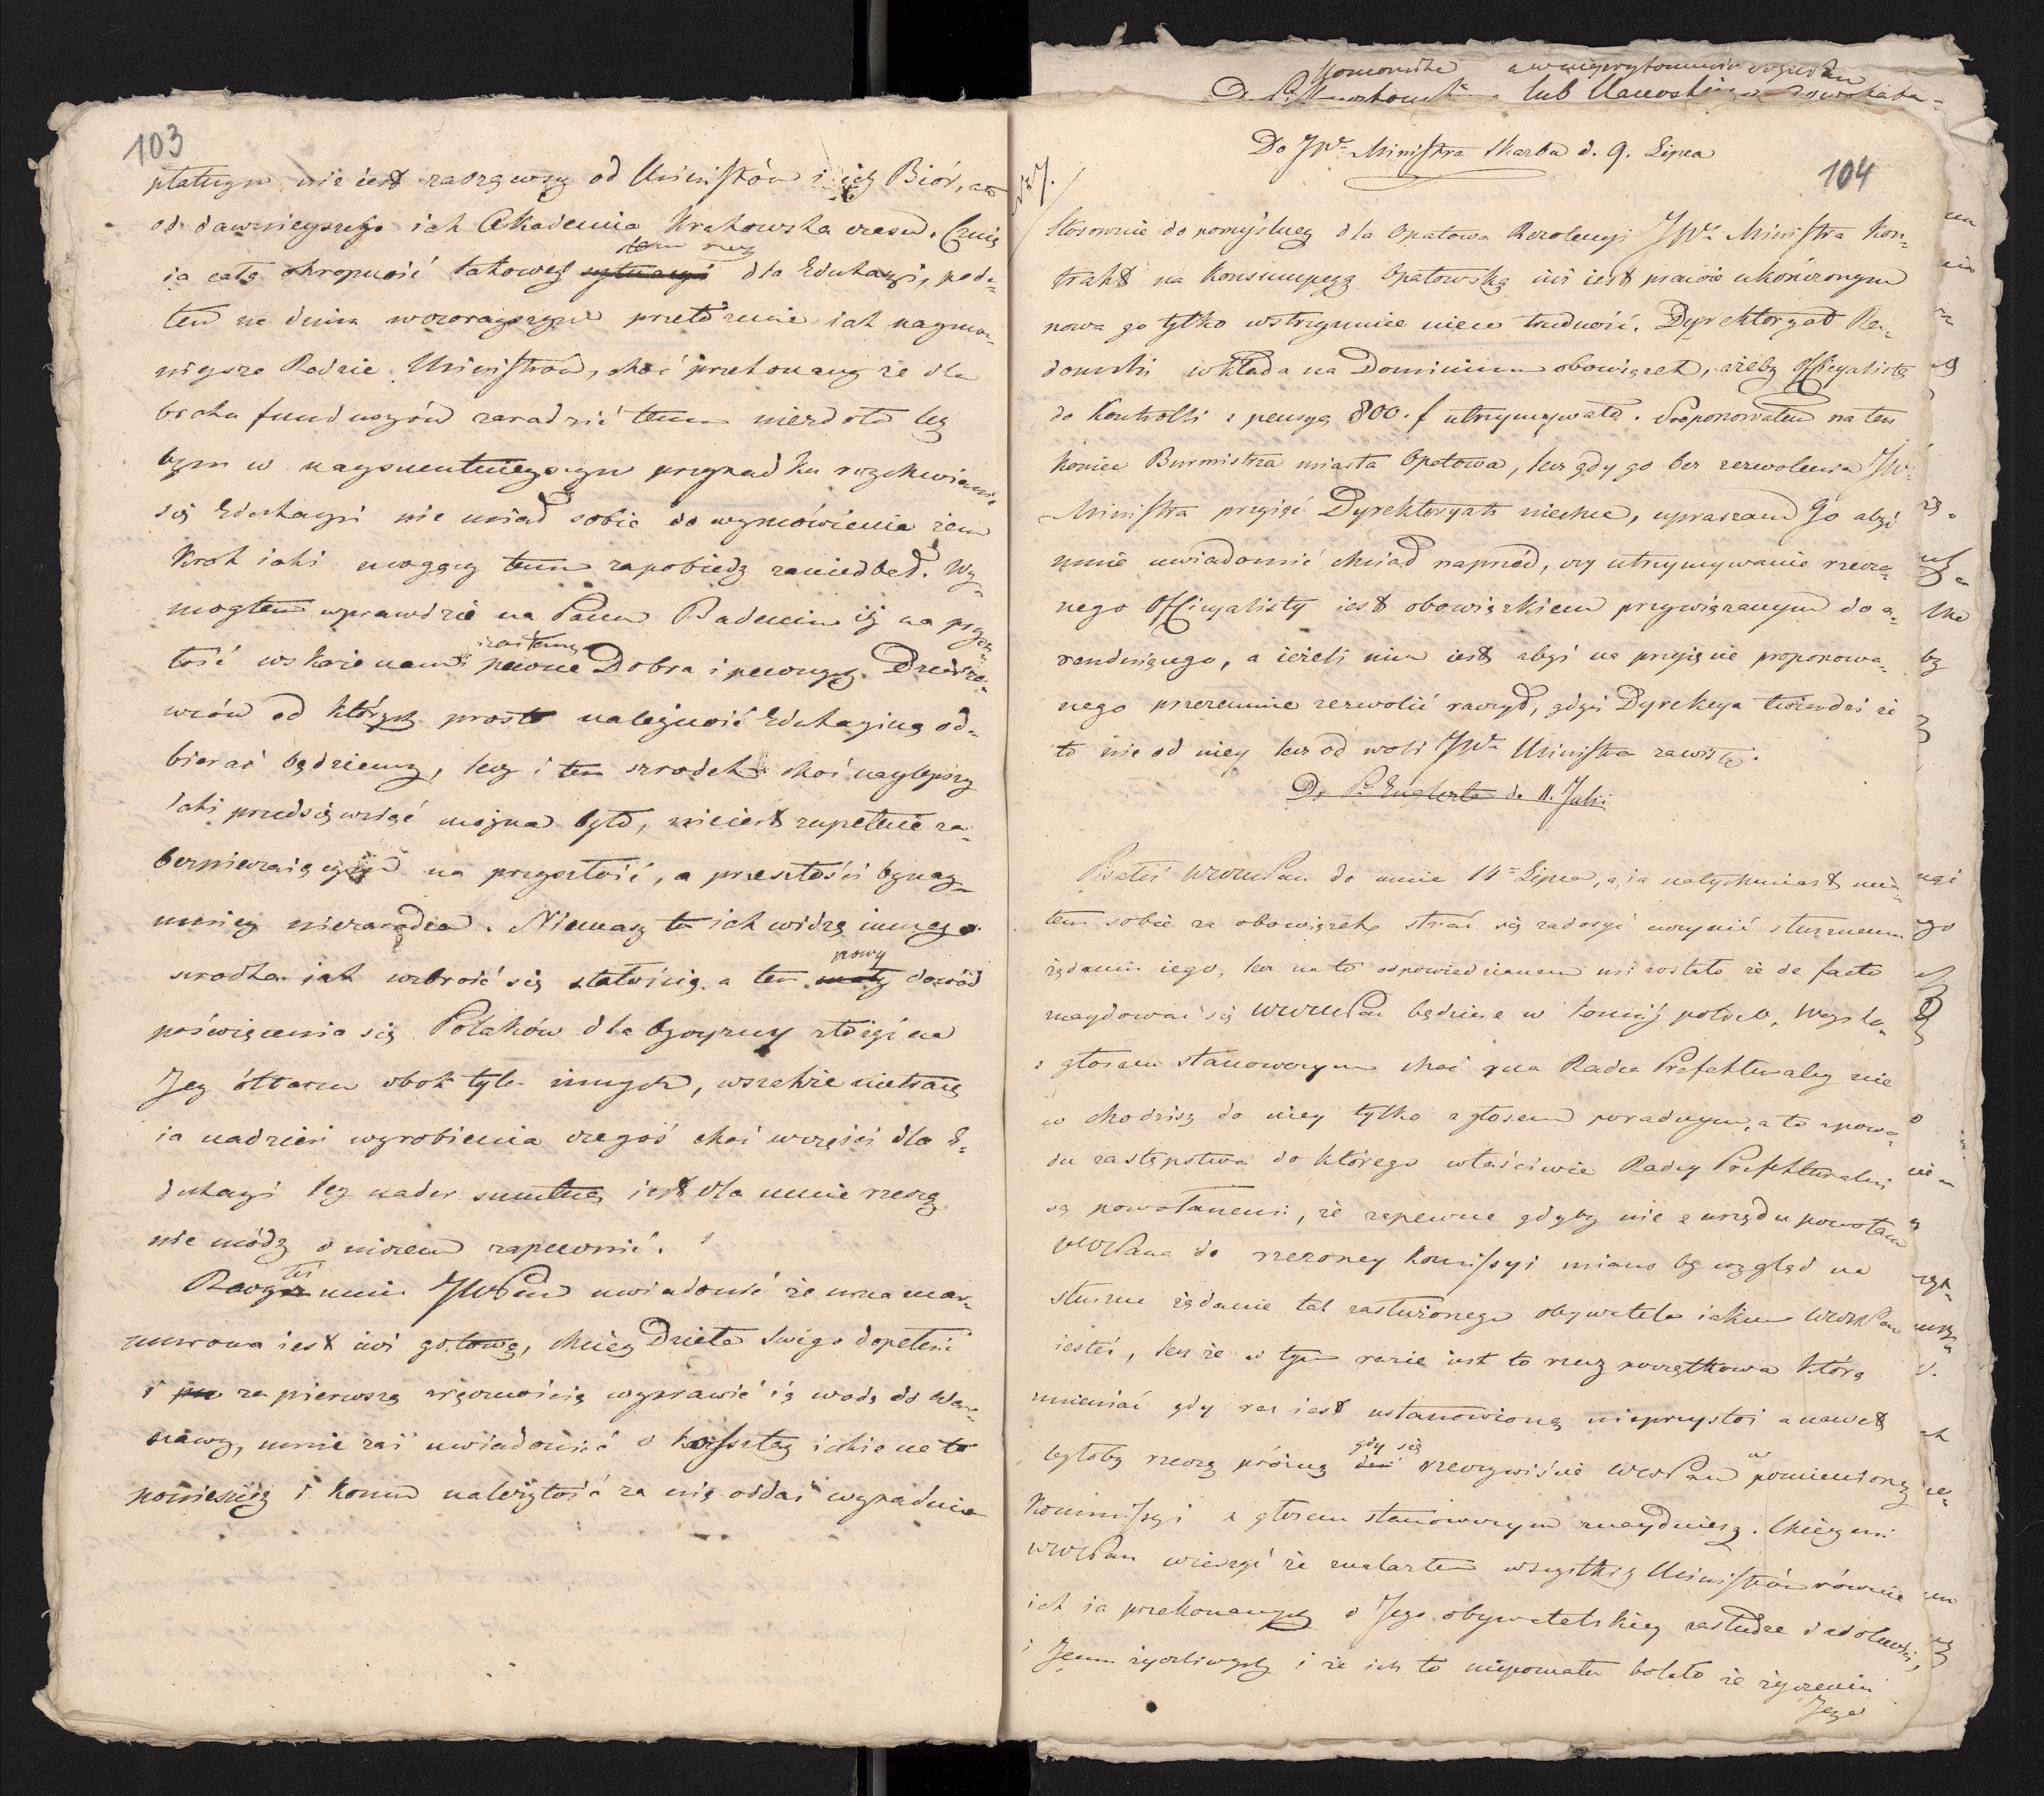 103
płatnym nie iest zacząwszy od Ministrów i ich Biór, aż
od dawnieyszego iak Akademia Krakowska czasu. Czuię
ia całą okropność takowey dla Edukacyi, poda-
łem na dniu wczorayszym przełożenie iak naymoc-
nieysze Radzie Ministrów, choć przekonany że dla
braku funduszów zaradzić temu niezdoła lecz
bym w naysmutnieyszym przypadku rozchwiania
się Edukacyi nie miał sobie do wymówienia żem
krok iaki mogący temu zapobiedz zaniedbał. Wy-
mogłem wprawdzie na Panu Badenim iż na przysz-
łość wskaże nam pewne Dobra i pewnych Dzierża-
wców od których prosto należność Edukacyiną od-
bierać będziemy, lecz i ten szrodek choć naylepszy
iaki przedsięwziąć można było, nieiest zupełnie za-
bezpieczaiącym na przyszłość, a przeszłości bynay-
mniey niezaradza. Niemasz tu iak widzę innego
szrodka iak uzbroić się stałością a ten nowy dowód
poświęcenia się Polaków dla Oyczyzny złożyć na
Jey ołtarzu obok tylu innych, wszakże nietracę
ia nadziei wyrobienia czegoś choć wczęści dla E-
dukacyi lecz nader smutną iest dla mnie rzeczą
nie módz o niczem zapewnić.
Raczyłeś mnie JWPan uwiadomić że urna mar-
murowa iest iuż gotową, chciey Dzieła swego dopełnić
i za pierwszą zręcznością wyprawić ią wodą do War-
szawy, mnie zaś uwiadomić o koszta iakie na to
poniesiesz i komu należytość za nią oddać wypadnie
Do JWo Ministra Skarbu d. 9. Lipca
104
Stosownie do pomyślney dla Opatowa Rezolucyi JWo Ministra Kon-
trakt na Konsumpcyą Opatowską iuż iest prawie ukończonym
nowa go tylko wstrzymuie nieco trudność. Dyrektoryat Ra-
domski wkłada na Dominium obowiązek, ażeby Officyalistę
do Kontrolli z pensyą 800. f utrzymywało. Proponowałem na ten
koniec Burmistrza miasta Opatowa, lecz gdy go bez zezwolenia JWo
Ministra przyiąć Dyrektoryat niechce, upraszam Go abyś
mnie uwiadomić chciał naprzód, czy utrzymywanie rzeczo-
nego Officyalisty iest obowiązkiem przywiązanym do a-
renduiącego, a ieżeli nim iest, abyś na przyięcie proponowa-
nego przezemnie zezwolić raczył, gdyż Dyrekcya twierdzi że
to nie od niey lecz od woli JWo Ministra zawisło.
Do Po Englerta d. 11. Julii
Pisałeś WWMPan do mnie 14o Lipca, a ia natychmiast mia-
łem sobie za obowiązek starać się zadosyć uczynić słusznemu
żądaniu iego, lecz na to odpowiedzianem mi zostało że de facto
znaydować się WWMPan będziesz w Komiss. potrzeb. Woysko.
z głosem stanowczym choć y na Radzie Prefekturalney nie
w chodzisz do niey tylko z głosem poradnym, a to z powo-
du zastępstwa do którego właściwie Radcy Prefekturalni
są powołanemi, że zapewne gdyby nie z urzędu powołano
WWPana do rzeczoney Komissyi miano by wzgląd na
słuszne żądanie tak zasłużonego obywatela iakim WWMPan
iesteś, lecz że w tym razie iest to rzecz początkowa którą
zmieniać gdy raz iest ustanowioną nieprzystoi a nawet
byłoby rzeczą próżną gdy się rzeczywiście WWPan w pomienioney
Kommissyi z głosem stanowczym znaydziesz. Chciey mi
WWPan wierzyć że znalazłem wszystkich Ministrów równie
iak ia przekonanych o Jego obywatelskiey zasłudze i zdolności,
i Jemu życzliwych i że ich to niepomału bolało że życzeniu
Jego